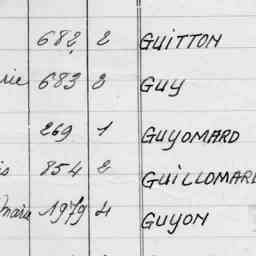 682 2 GUITTON
rie 683 2 GUY
269 1 GUYOMARD
is 854 2 GUILLOMARD
maria 1979 4 GUYON